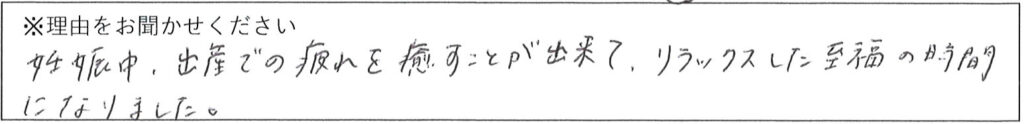 ※理由をお聞かせください
妊娠中、出産での疲れを癒すことが出来て、リラックスした至福の時間
になりました。